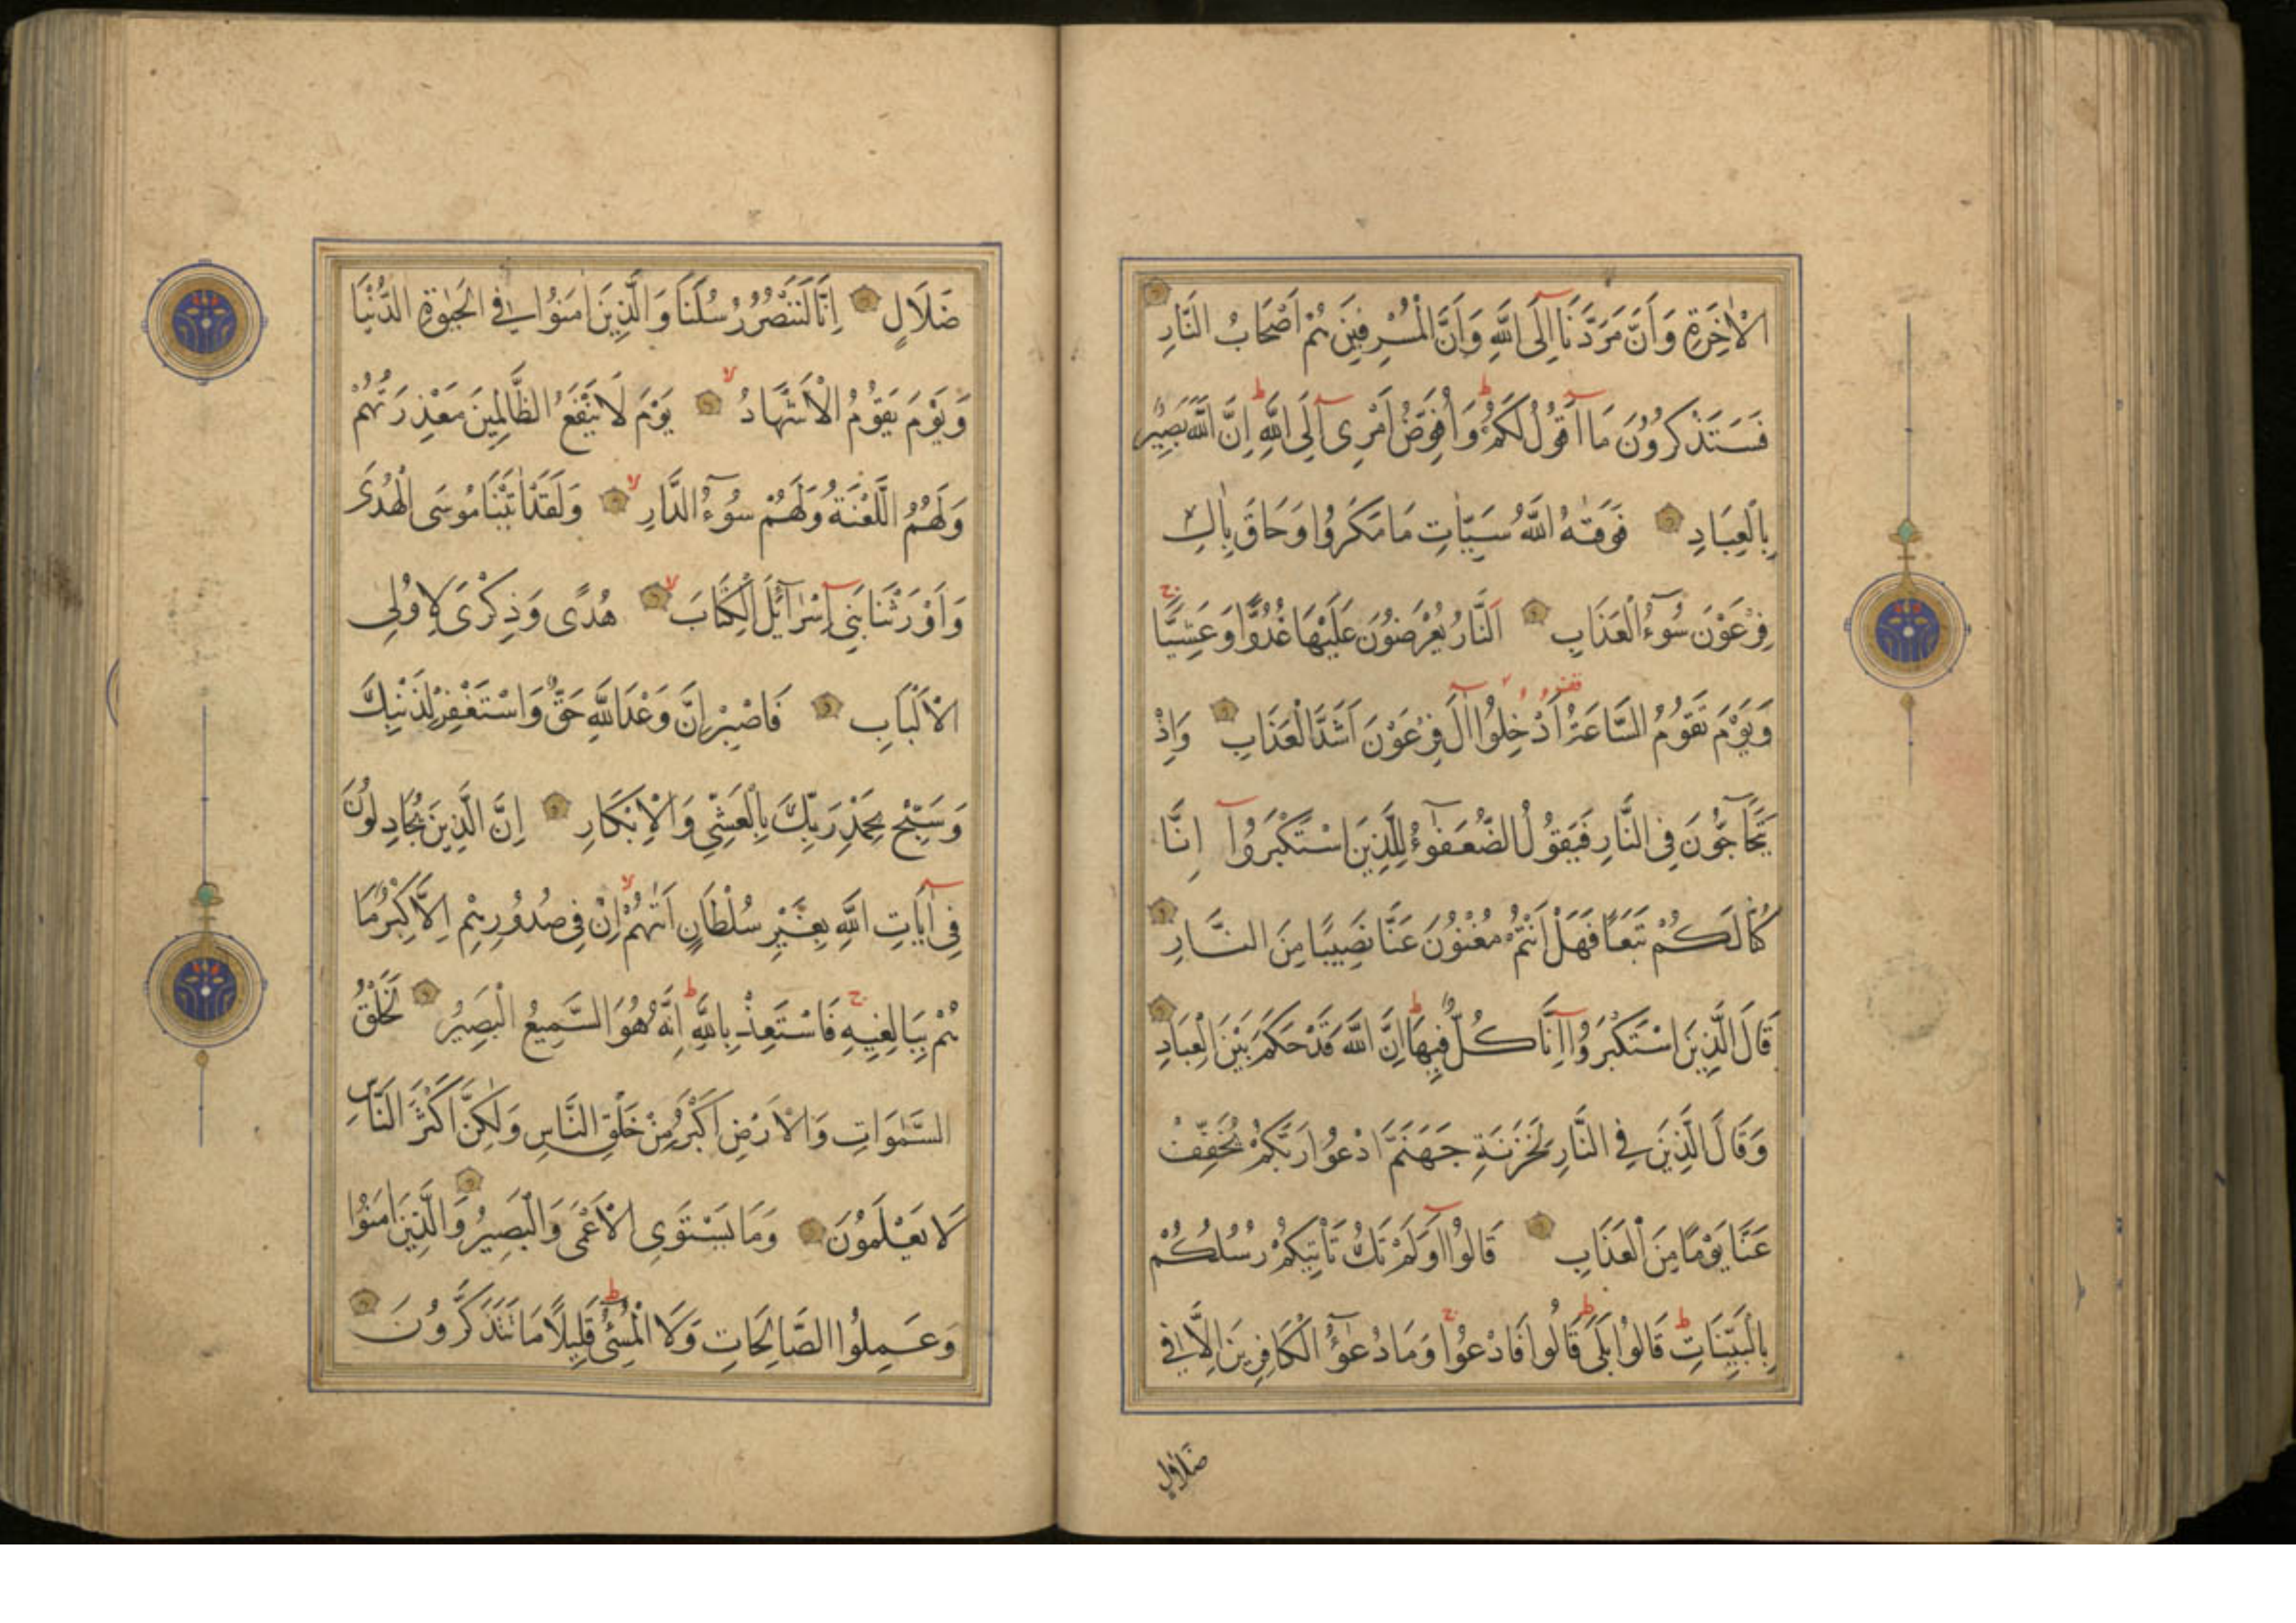 الْاٰخِرَةِ وَاَنَّ مَرَدَّنَا اِلَى اللّٰهِ وَاَنَّ الْمُسْرِفِينَ هُمْ اَصْحَابُ النَّارِ
فَسَتَذْكُرُونَ مَا اَقُولُ لَكُمْ وَاُفَوِّضُ اَمْرِى اِلَى اللّٰهِ اِنَّ اللّٰهَ بَصِيرٌ
بِالْعِبَادِ فَوَقٰيهُ اللّٰهُ سَيِّاٰتِ مَا مَكَرُوا وَحَاقَ بِاٰلِ
فِرْعَوْنَ سُوٓءُ الْعَذَابِ اَلنَّارُ يُعْرَضُونَ عَلَيْهَا غُدُوًّا وَعَشِيًّا ج
وَيَوْمَ تَقُومُ السَّاعَةُ اَدْخِلُوا اٰلَ فِرْعَوْنَ اَشَدَّ الْعَذَابِ وَاِذْ
يَتَحَاجُّونَ فِى النَّارِ فَيَقُولُ الضُّعَفٰٓؤُا لِلَّذِينَ اسْتَكْبَرُوٓا اِنَّا
كُنَّا لَكُمْ تَبَعًا فَهَلْ اَنْتُمْ مُغْنُونَ عَنَّا نَصِيبًا مِنَ النَّارِ
قَالَ الَّذِينَ اسْتَكْبَرُوا اِنَّا كُلٌّ فِيهَا ط اِنَّ اللّٰهَ قَدْ حَكَمَ بَيْنَ الْعِبَادِ
وَقَالَ الَّذِينَ فِى النَّارِ لِخَزَنَةِ جَهَنَّمَ ادْعُوا رَبَّكُمْ يُخَفِّفْ
عَنَّا يَوْمًا مِنَ الْعَذَابِ قَالُوا اَوَلَمْ تَكُ تَاْتِيكُمْ رُسُلُكُمْ
بِالْبَيِّنَاتِ ط قَالُوا بَلٰى ط قَالُوا فَادْعُوا ج وَمَا دُعٰٓؤُا الْكَافِرِينَ اِلَّا فِى
ضَلَالٍ
ضَلَالٍ اِنَّا لَنَنْصُرُ رُسُلَنَا وَالَّذِينَ اٰمَنُوا فِى الْحَيٰوةِ الدُّنْيَا
وَيَوْمَ يَقُومُ الْاَشْهَادُ لا يَوْمَ لَا يَنْفَعُ الظَّالِمِينَ مَعْذِرَتُهُمْ
وَلَهُمُ اللَّعْنَةُ وَلَهُمْ سُوٓءُ الدَّارِ لا وَلَقَدْ اٰتَيْنَا مُوسَى الْهُدٰى
وَاَوْرَثْنَا بَنِى اِسْرَآئِلَ الْكِتَابَ لا هُدًى وَذِكْرٰى لِاُولِى
الْاَلْبَابِ فَاصْبِرْ اِنَّ وَعْدَ اللّٰهِ حَقٌّ وَاسْتَغْفِرْ لِذَنْبِكَ
وَسَبِّحْ بِحَمْدِ رَبِّكَ بِالْعَشِيِّ وَالْاِبْكَارِ اِنَّ الَّذِينَ يُجَادِلُونَ
فِى اٰيَاتِ اللّٰهِ بِغَيْرِ سُلْطَانٍ اَتٰيهُمْ لا اِنْ فِى صُدُورِهِمْ اِلَّا كِبْرٌ مَا
هُمْ بِبَالِغِيهِ ج فَاسْتَعِذْ بِاللّٰهِ ط اِنَّهُ هُوَ السَّمِيعُ الْبَصِيرُ لَخَلْقُ
السَّمٰوَاتِ وَالْاَرْضِ اَكْبَرُ مِنْ خَلْقِ النَّاسِ وَلٰكِنَّ اَكْثَرَ النَّاسِ
لَا يَعْلَمُونَ وَمَا يَسْتَوِى الْاَعْمٰى وَالْبَصِيرُ وَالَّذِينَ اٰمَنُوا
وَعَمِلُوا الصَّالِحَاتِ وَلَا الْمُسِيٓءُ ط قَلِيلًا مَا تَتَذَكَّرُونَ